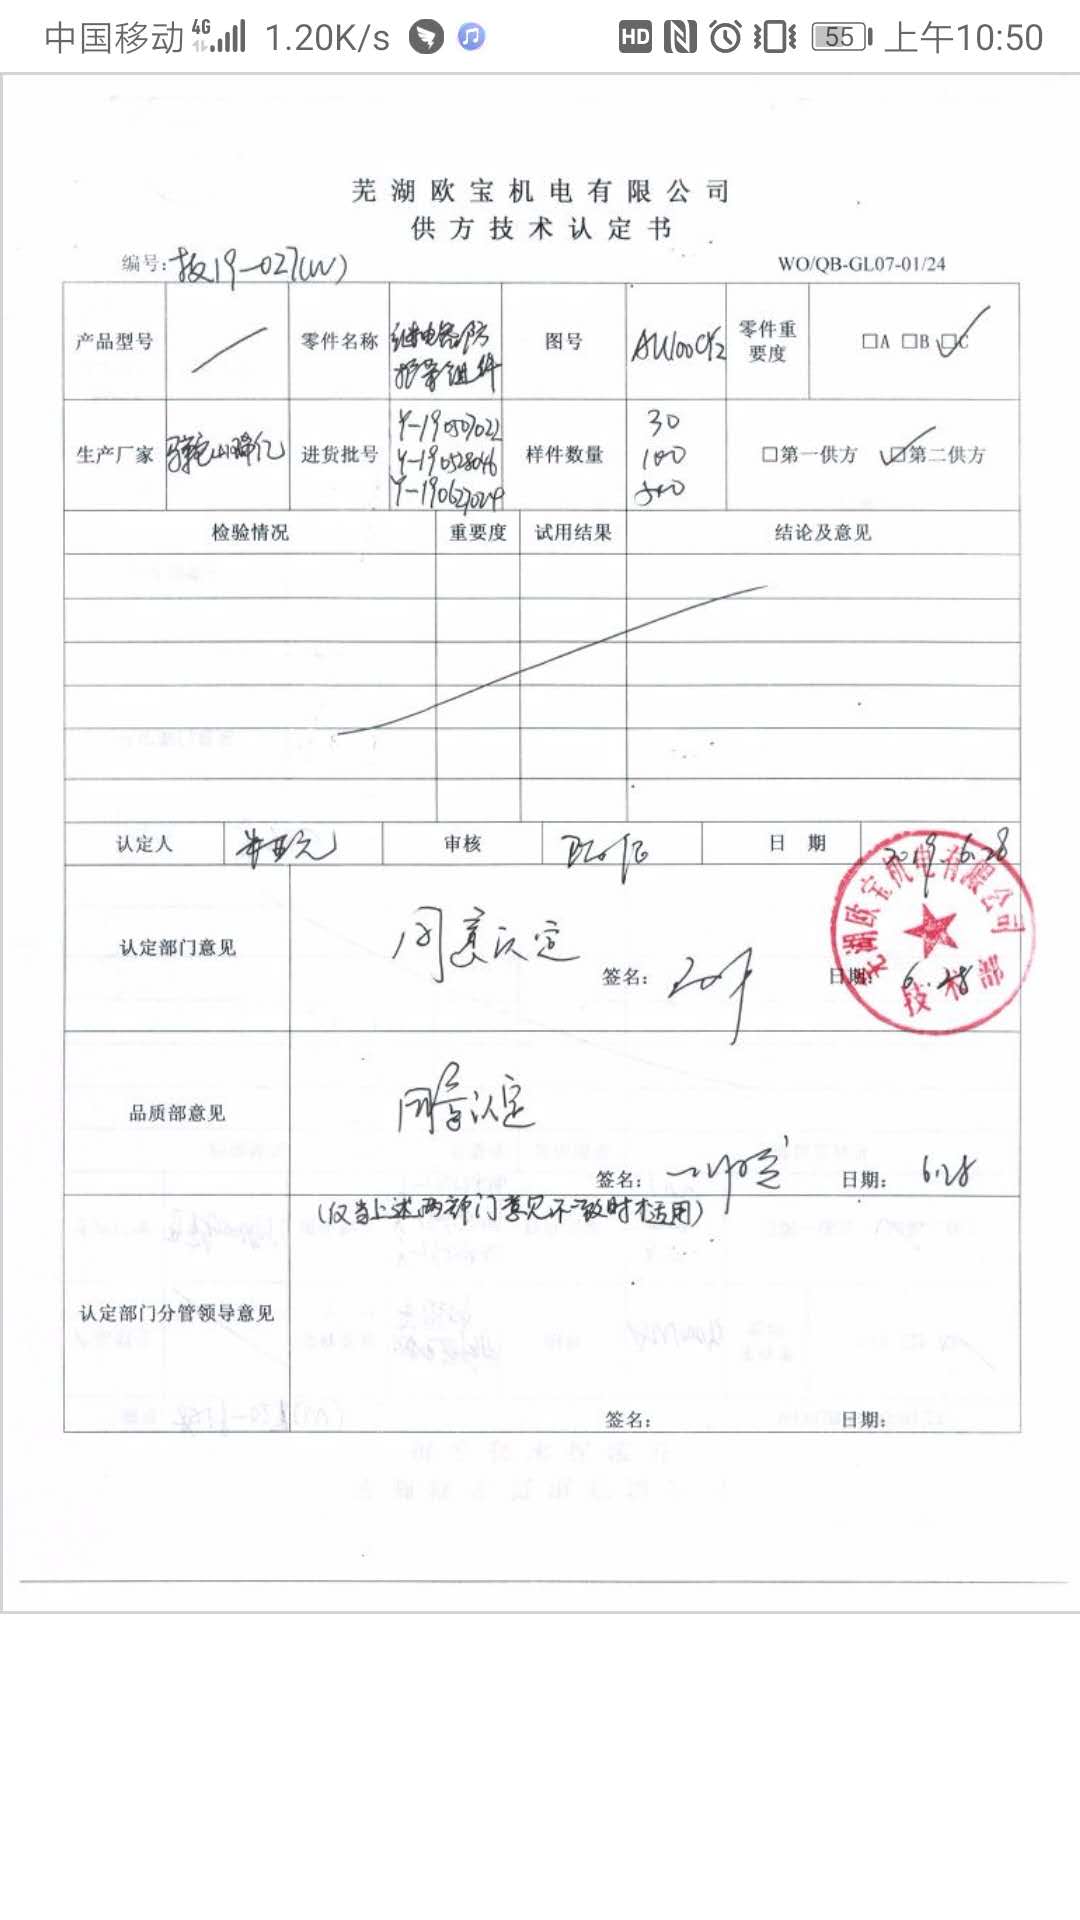 中国移动 4G 1.20K/s HD 55 上午10:50
芜湖欧宝机电有限公司
供方技术认定书
编号: 19-027(W)
WO/QB-GL07-01/24
产品型号 零件名称 继电器防护罩组件 图号 零件重要度 □A □B □C
生产厂家 进货批号 Y-190507022 样件数量 30 □第一供方 □第二供方
Y-190528046 100
Y-190627029 500
检验情况 重要度 试用结果 结论及意见
认定人 审核 日 期 2019.6.28
认定部门意见 同意认定
签名: 日期: 6.28
芜湖欧宝机电有限公司
技术部
品质部意见 同意认定
签名: 日期: 6.28
(仅当上述两部门意见不一致时才适用)
认定部门分管领导意见
签名: 日期: